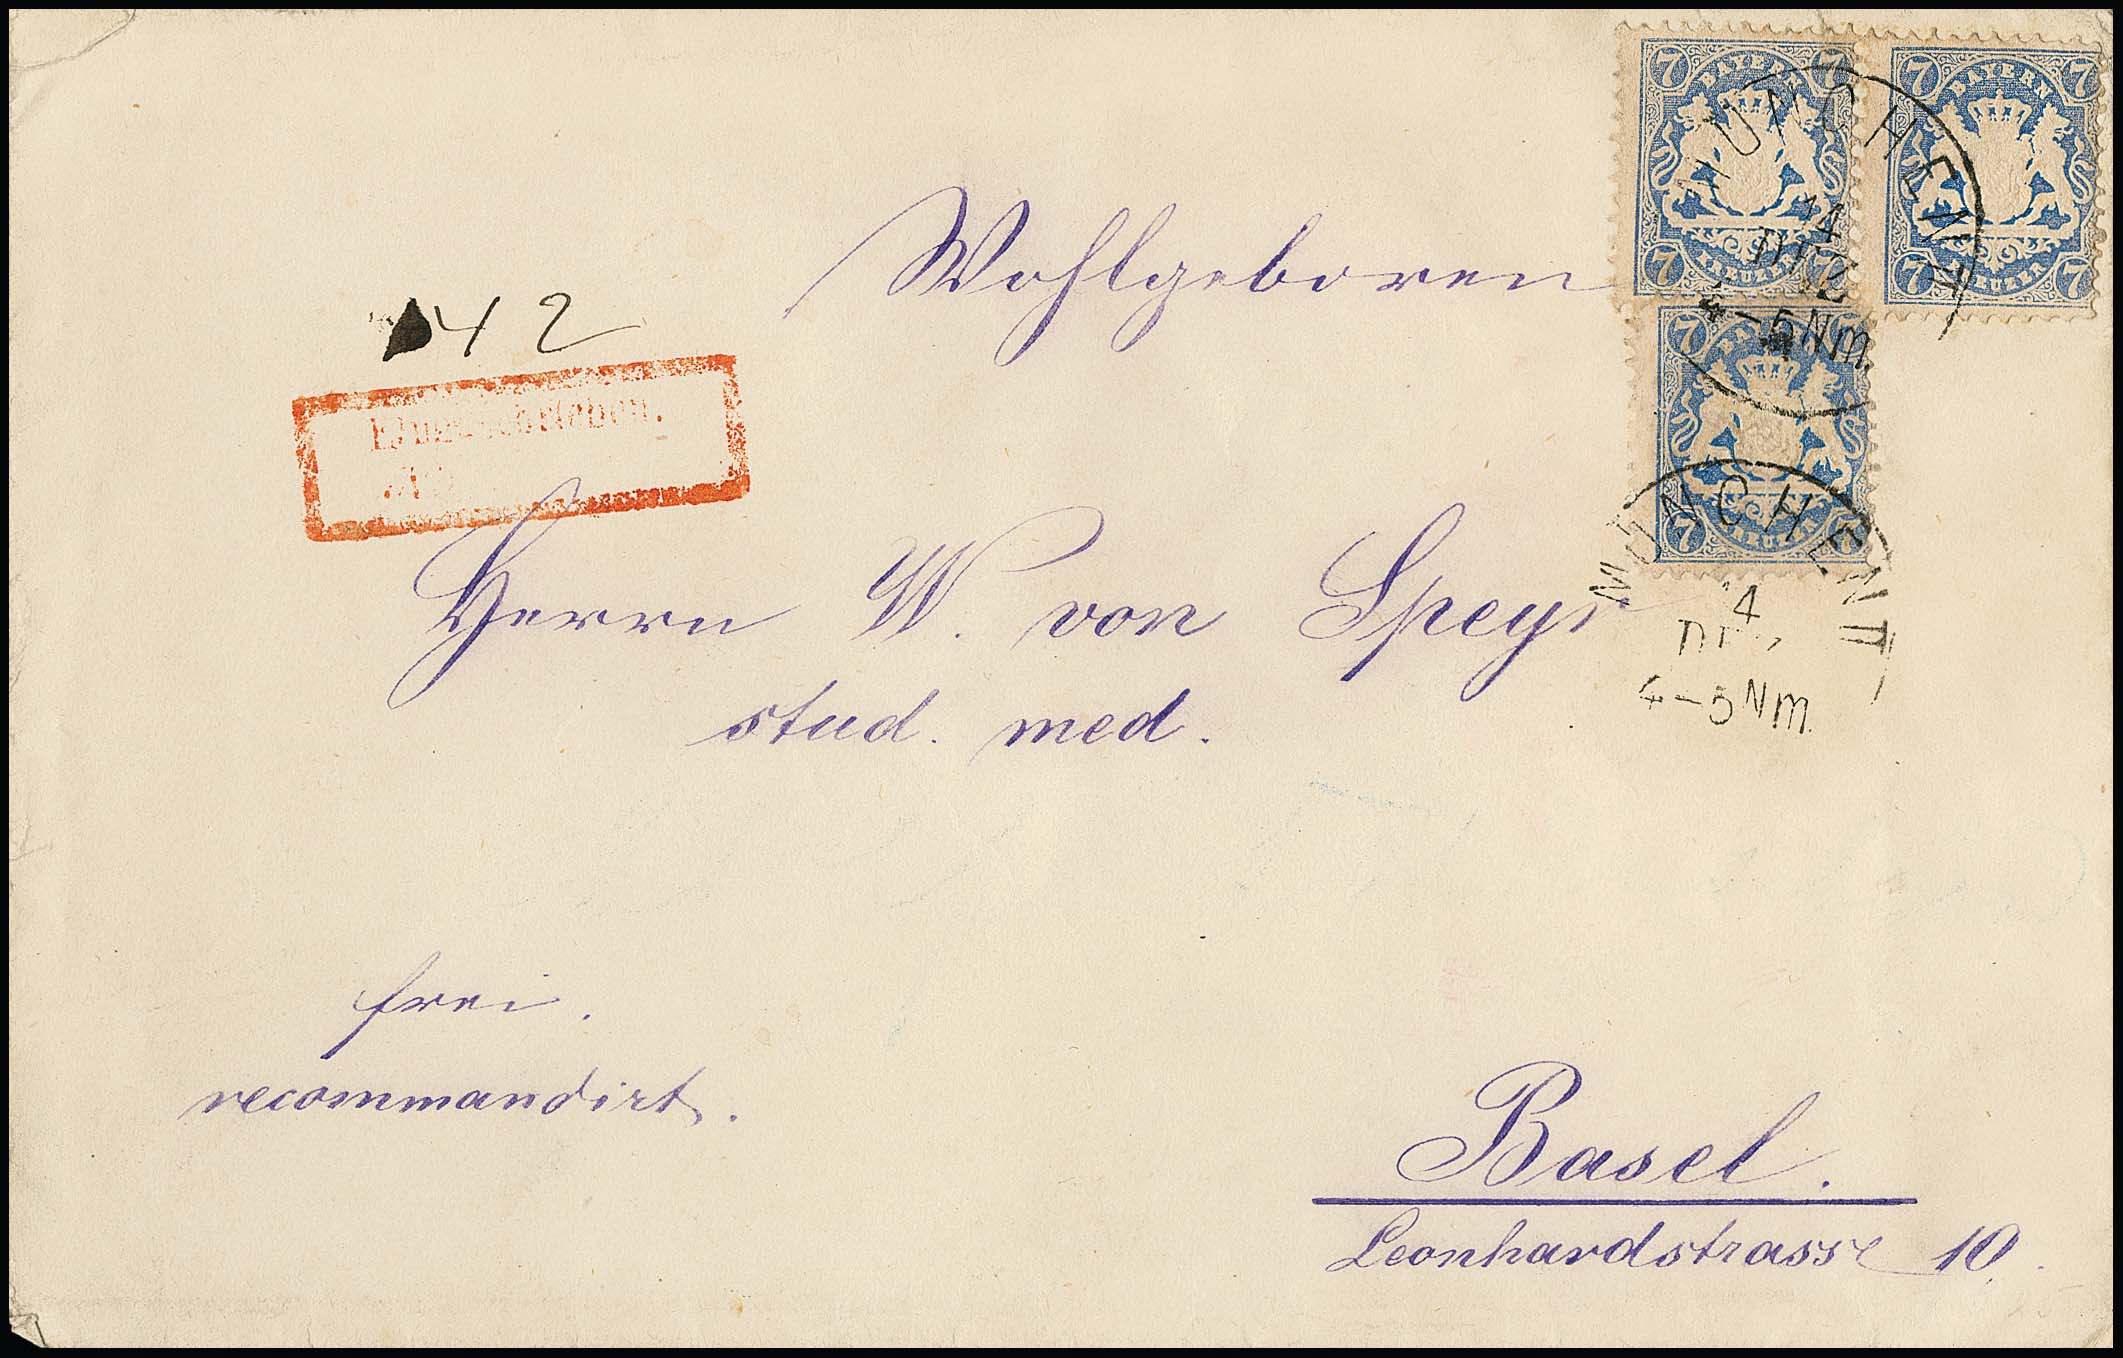 7 BAYERN 7
7 KREUZER 7
7 BAYERN 7
7 KREUZER 7
7 BAYERN 7
7 KREUZER 7
MÜNCHEN
14
DEZ
4-5 Nm.
MÜNCHEN
14
DEZ
4-5 Nm.
Wohlgeboren
42
Eingeschrieben.
Herrn W. von Speyr
stud. med.
frei.
recommandirt.
Basel.
Leonhardstrasse 10.